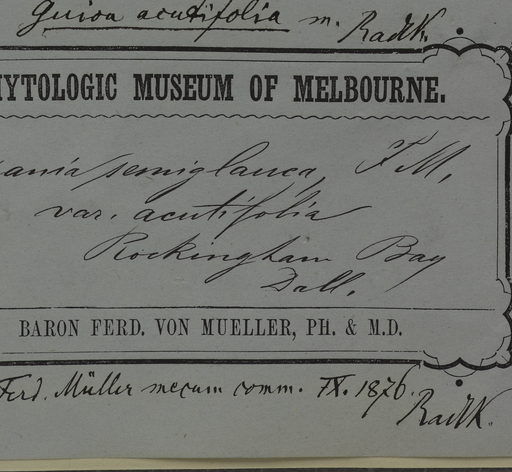 Guioa acutifolia m. Radlk.
HYTOLOGIC MUSEUM OF MELBOURNE.
ania semiglauca, F. M.,
var. acutifolia
Rockingham Bay
Dall.
BARON FERD. VON MUELLER, PH. & M.D.
Ferd. Müller mecum comm. IX. 1876.
Radlk.